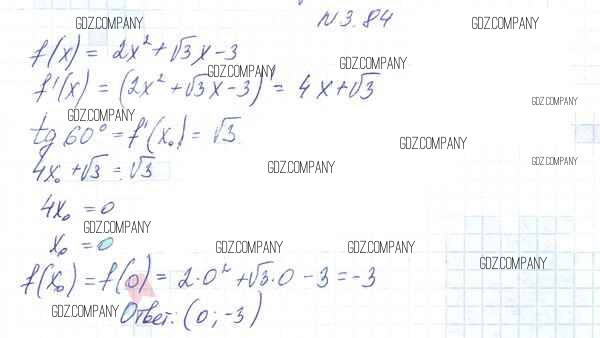 N 3.84
GDZ.COMPANY
GDZ.COMPANY
f(x) = 2x² + √3x - 3
GDZ.COMPANY
GDZ.COMPANY
f'(x) = (2x² + √3x - 3)' = 4x + √3
GDZ.COMPANY
GDZ.COMPANY
tg 60° = f'(x₀) = √3
GDZ.COMPANY
4x₀ + √3 = √3
GDZ.COMPANY
GDZ.COMPANY
4x₀ = 0
GDZ.COMPANY
x₀ = 0
GDZ.COMPANY
GDZ.COMPANY
GDZ.COMPANY
f(x₀) = f(0) = 2·0² + √3·0 - 3 = -3
GDZ.COMPANY
Ответ: (0; -3)